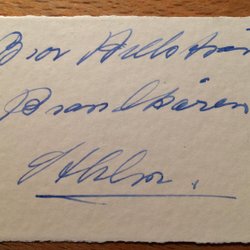 Bror Hellström
Brandkåren
Sthlm.